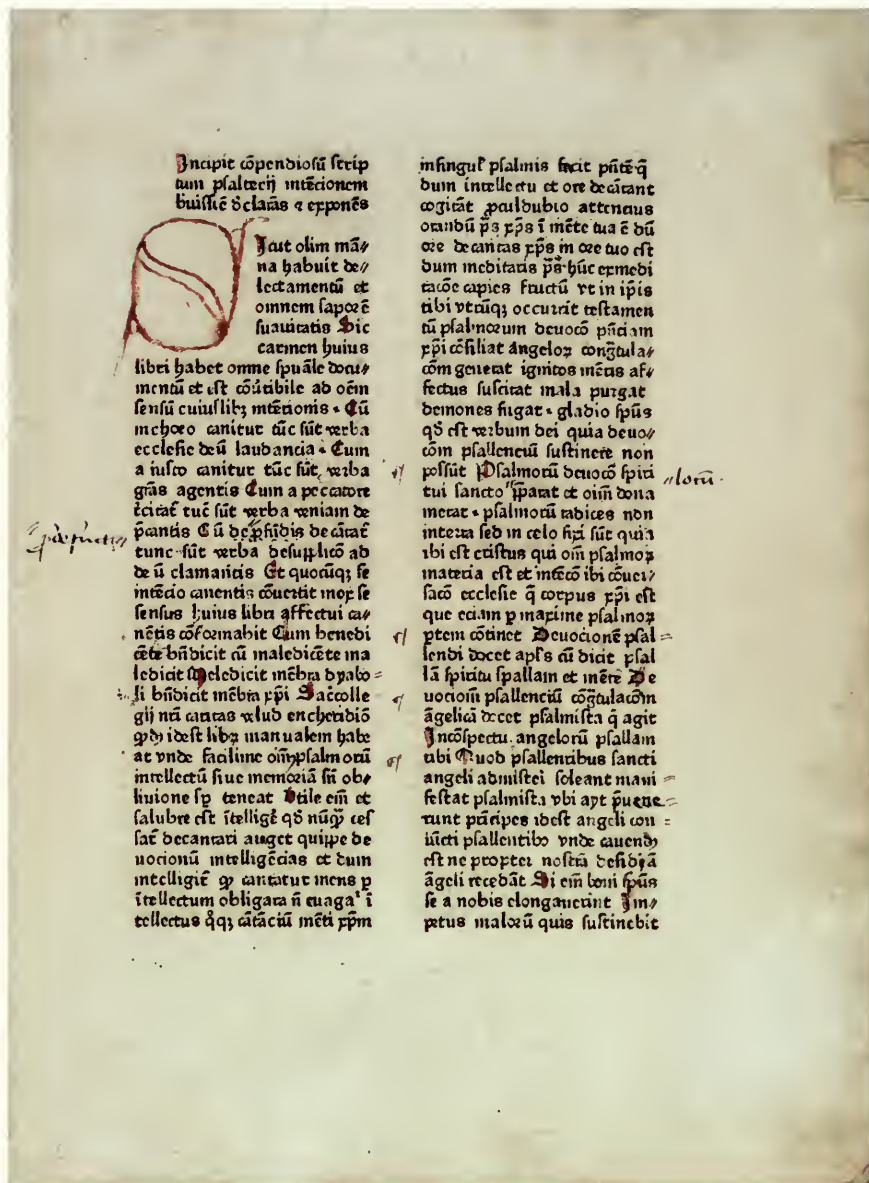 Incipit cōpendiosū scrip
tum psalterij intēcionem
buissiē dclarās ⁊ exponēs
Sicut olim mā⸗
na habuit de⸗
lectamentū et
omnem saporē
suauitatis Sic
carmen huius
libri habet omne spuāle docu⸗
mentū et est cōūtibile ad oēm
sensū cuiuslibꝫ intēcionis · Cū
inchoro canitur tūc sūt verba
ecclesie deū laudancia · Cum
a iusto canitur tūc sūt verba
grās agentis Cum a peccatore
rēcitat̄ tūc sūt verba veniam de
p̄cantis Cū de ꝓfūdis decātat̄
tunc sūt verba de supplicō ad
deū clamantis Et quocūqꝫ se
intēcio canentis cōuertit mox se
sensus huius libri affectui ca⸗
nētis cōformabit Cum benedi
cēte bn̄dicit cū maledicēte ma
ledicit Maledicit mēbra dyabo =
li bn̄dicit mēbra xp̄i Sac̄colle
gij nr̄i caritas velud encheridiō
idest libꝝ manualem habe
at vnde facilime oīm psalmorū
intellectū siue memoriā sn̄ ob⸗
liuione sꝑ teneat Vtile em̄ et
salubre est ītelligē qd̄ nūqꝫ ces
sat̄ decantari auget quippe de
uocionū intelligēcias et dum
intelligit̄ ꝙ cantatur mens ꝑ
ītellectum obligata n̄ euagat̉ ī
tellectus qͦqꝫ cātāciū mēti xp̄m
insingul̉ psalmis facit pn̄tē·q̄
dum intellectu et ore decātant
cogitāt ꝓculdubio attencius
orandū p̄s xp̄s ī mēte tua ē dū
ore decantas xp̄s in ore tuo est
dum meditaris p̄s·hūc exmedi
tacōe capies fructū vt in ip̄is
tibi vtrūqꝫ occurrit testamen
tū psalmorum deuocō pn̄ciam
xp̄i cōsiliat Angeloꝝ congr̄tula⸗
cōm generat ignitos mētis af⸗
fectus suscitat mala purgat
demones fugat · gladio sp̄us
qd̄ est verbum dei quia deuo⸗
cōm psallenciū sustinere non
possūt Psalmorū deuocō spiri
tui sancto p̄parat et oīm dona
meratͬ · psalmorū radices non
interra sed in celo fixi sūt quia
ibi est cristus qui oīm psalmoꝝ
materia est et intēcō ibi cōuer⸗
sacō ecclesie q̄ corpus xp̄i est
que eciam ꝑ maxime psalmoꝝ
ꝑtem cōtinet Deuocionē psal =
lendi docet apl̄s cū dicit psal
lā spiritu psallam et mēte De
uocioīm psallenciū cōgr̄tulacōm
āgelicā docet psalmista q̄ agit
Incōspectu angelorū psallam
tibi Quod psallentibus sancti
angeli admisceri soleant mani =
festat psalmista vbi ayt p̄uene =
runt prīcipes idest angeli con =
iūcti psallentibꝰ vnde cauendꝫ
est ne propter nostrā desidiā
āgeli recedāt Si em̄ boni sp̄us
se a nobis elongauerint Im⸗
petus malorū quis sustinebit
lorū ·